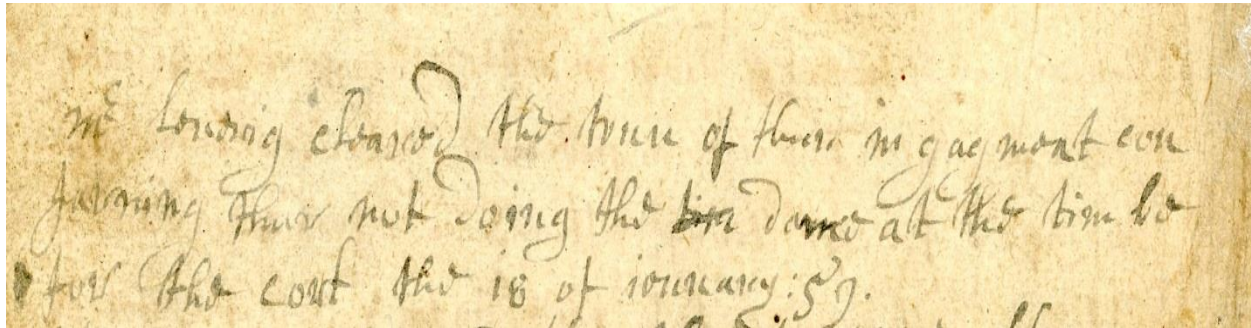 mr loueing cleared the toun of thur ingagment con
sarning thur not doing the dame at the tim be
for the cort the 18 of ienuary : 59.